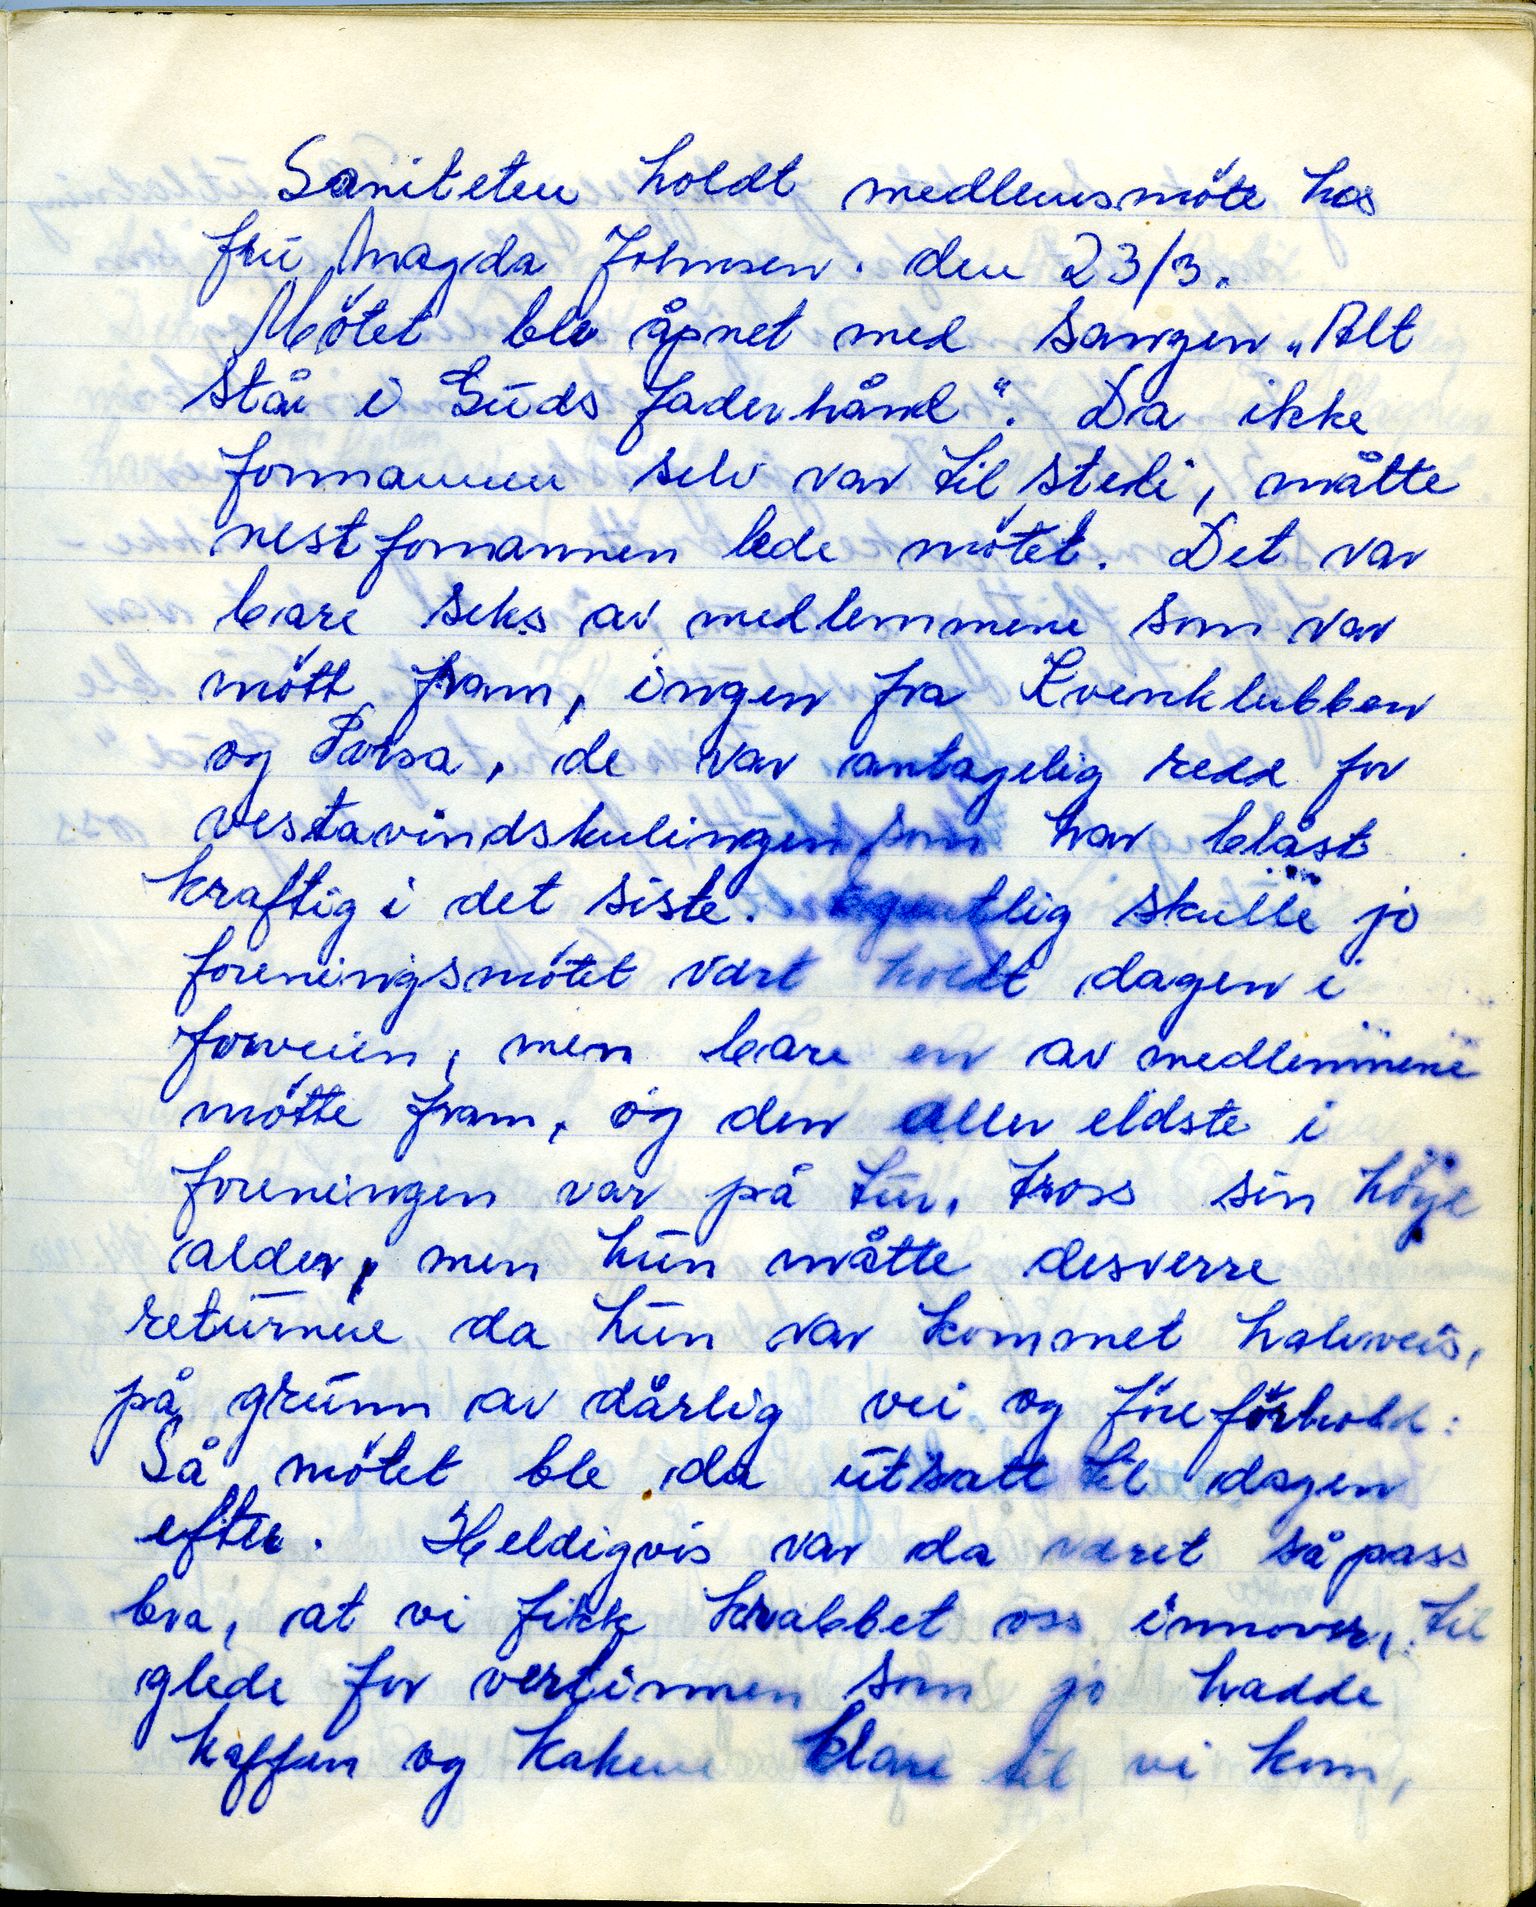 Saniteten holdt medlemsmöte hos
fru Magda Johnsen. den 23/3.
Mötet ble åpnet med sangen „Alt
står i Guds faderhånd". Da ikke
formannen selv var til stede, måtte
nestformannen lede mötet. Det var
bare seks av medlemmene som var
mött fram, ingen fra Kvenklubben
og Porsa, de var antagelig redd for
vestavindskulingen som har blåst
kraftig i det siste. Egentlig skulle jo
foreningsmötet vært holdt dagen i
forveien, men bare en av medlemmene
mötte fram, og den aller eldste i
foreningen var på tur, tross sin höye
alder, men hun måtte desverre
returnere da hun var kommet halvveis,
på grunn av dårlig vei og föreforhold.
Så mötet ble da utsatt til dagen
efter. Heldigvis var da været så pass
bra, at vi fikk krabbet oss innover, til
glede for vertinnen som jo hadde
kaffen og kakene klare til vi kom,